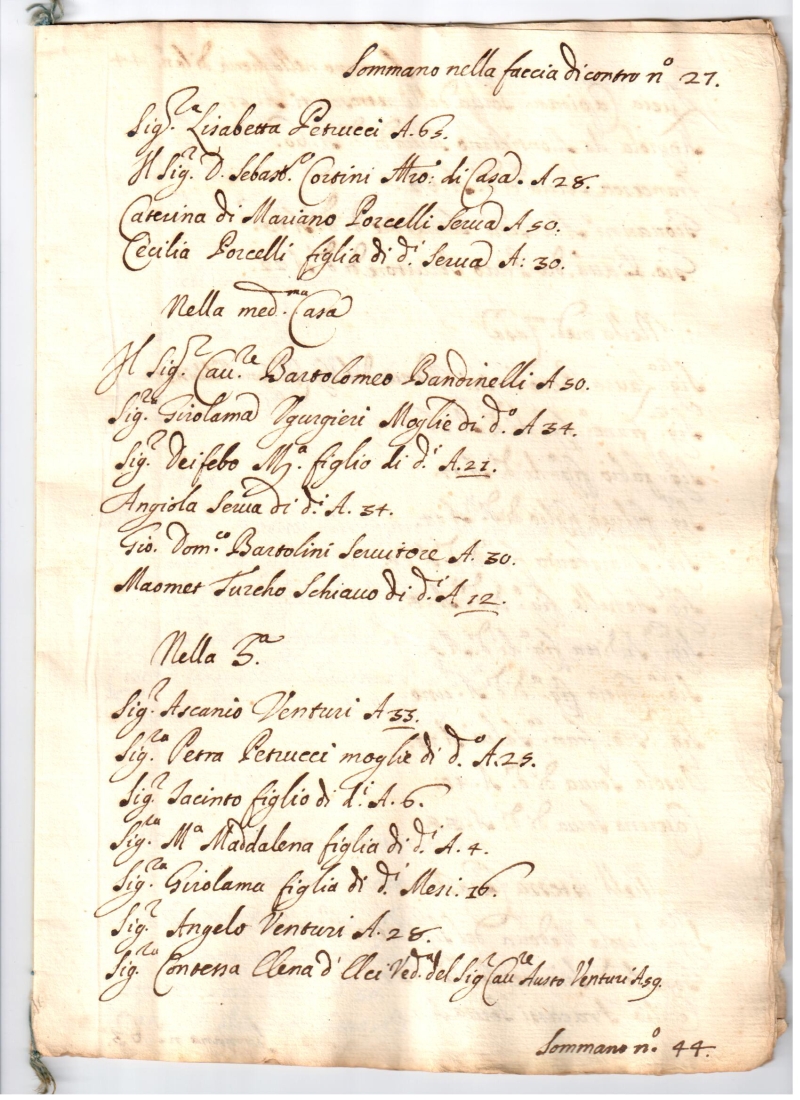 Sommano nella faccia di contro nº 27.
Sig.ra Lisabetta Petrucci A. 65.
Il Sig.r D. Sebast.o Cortini Mro: di Casa. A 28.
Caterina di Mariano Porcelli Serua A 50.
Cecilia Porcelli figlia di d.i Serua A: 30.
Nella med.ma Casa
Il Sig.r Cau.re Bartolomeo Bandinelli A 50.
Sig.ra Girolama Vgurgieri Moglie di d.o A 34.
Sig.r Deifebo M.a figlio di d.i A. 21.
Angiola Serua di d.i A. 34.
Gio. Dom.co Bartolini Seruitore A. 30.
Maomet Turcho Schiauo di d.i A 12.
Nella 3.a
Sig.r Ascanio Venturi A 33.
Sig.ra Petra Petrucci moglie di d.o A. 25.
Sig.r Iacinto figlio di d.i A. 6.
Sig.ra M.a Maddalena figlia di d.i A. 4.
Sig.ra Girolama figlia di d.i Mesi. 16.
Sig.r Angelo Venturi A. 28.
Sig.ra Contessa Elena d' Elci Ved.a del Sig.r Cau.re Austo Venturi A 59.
Sommano n.o 44.